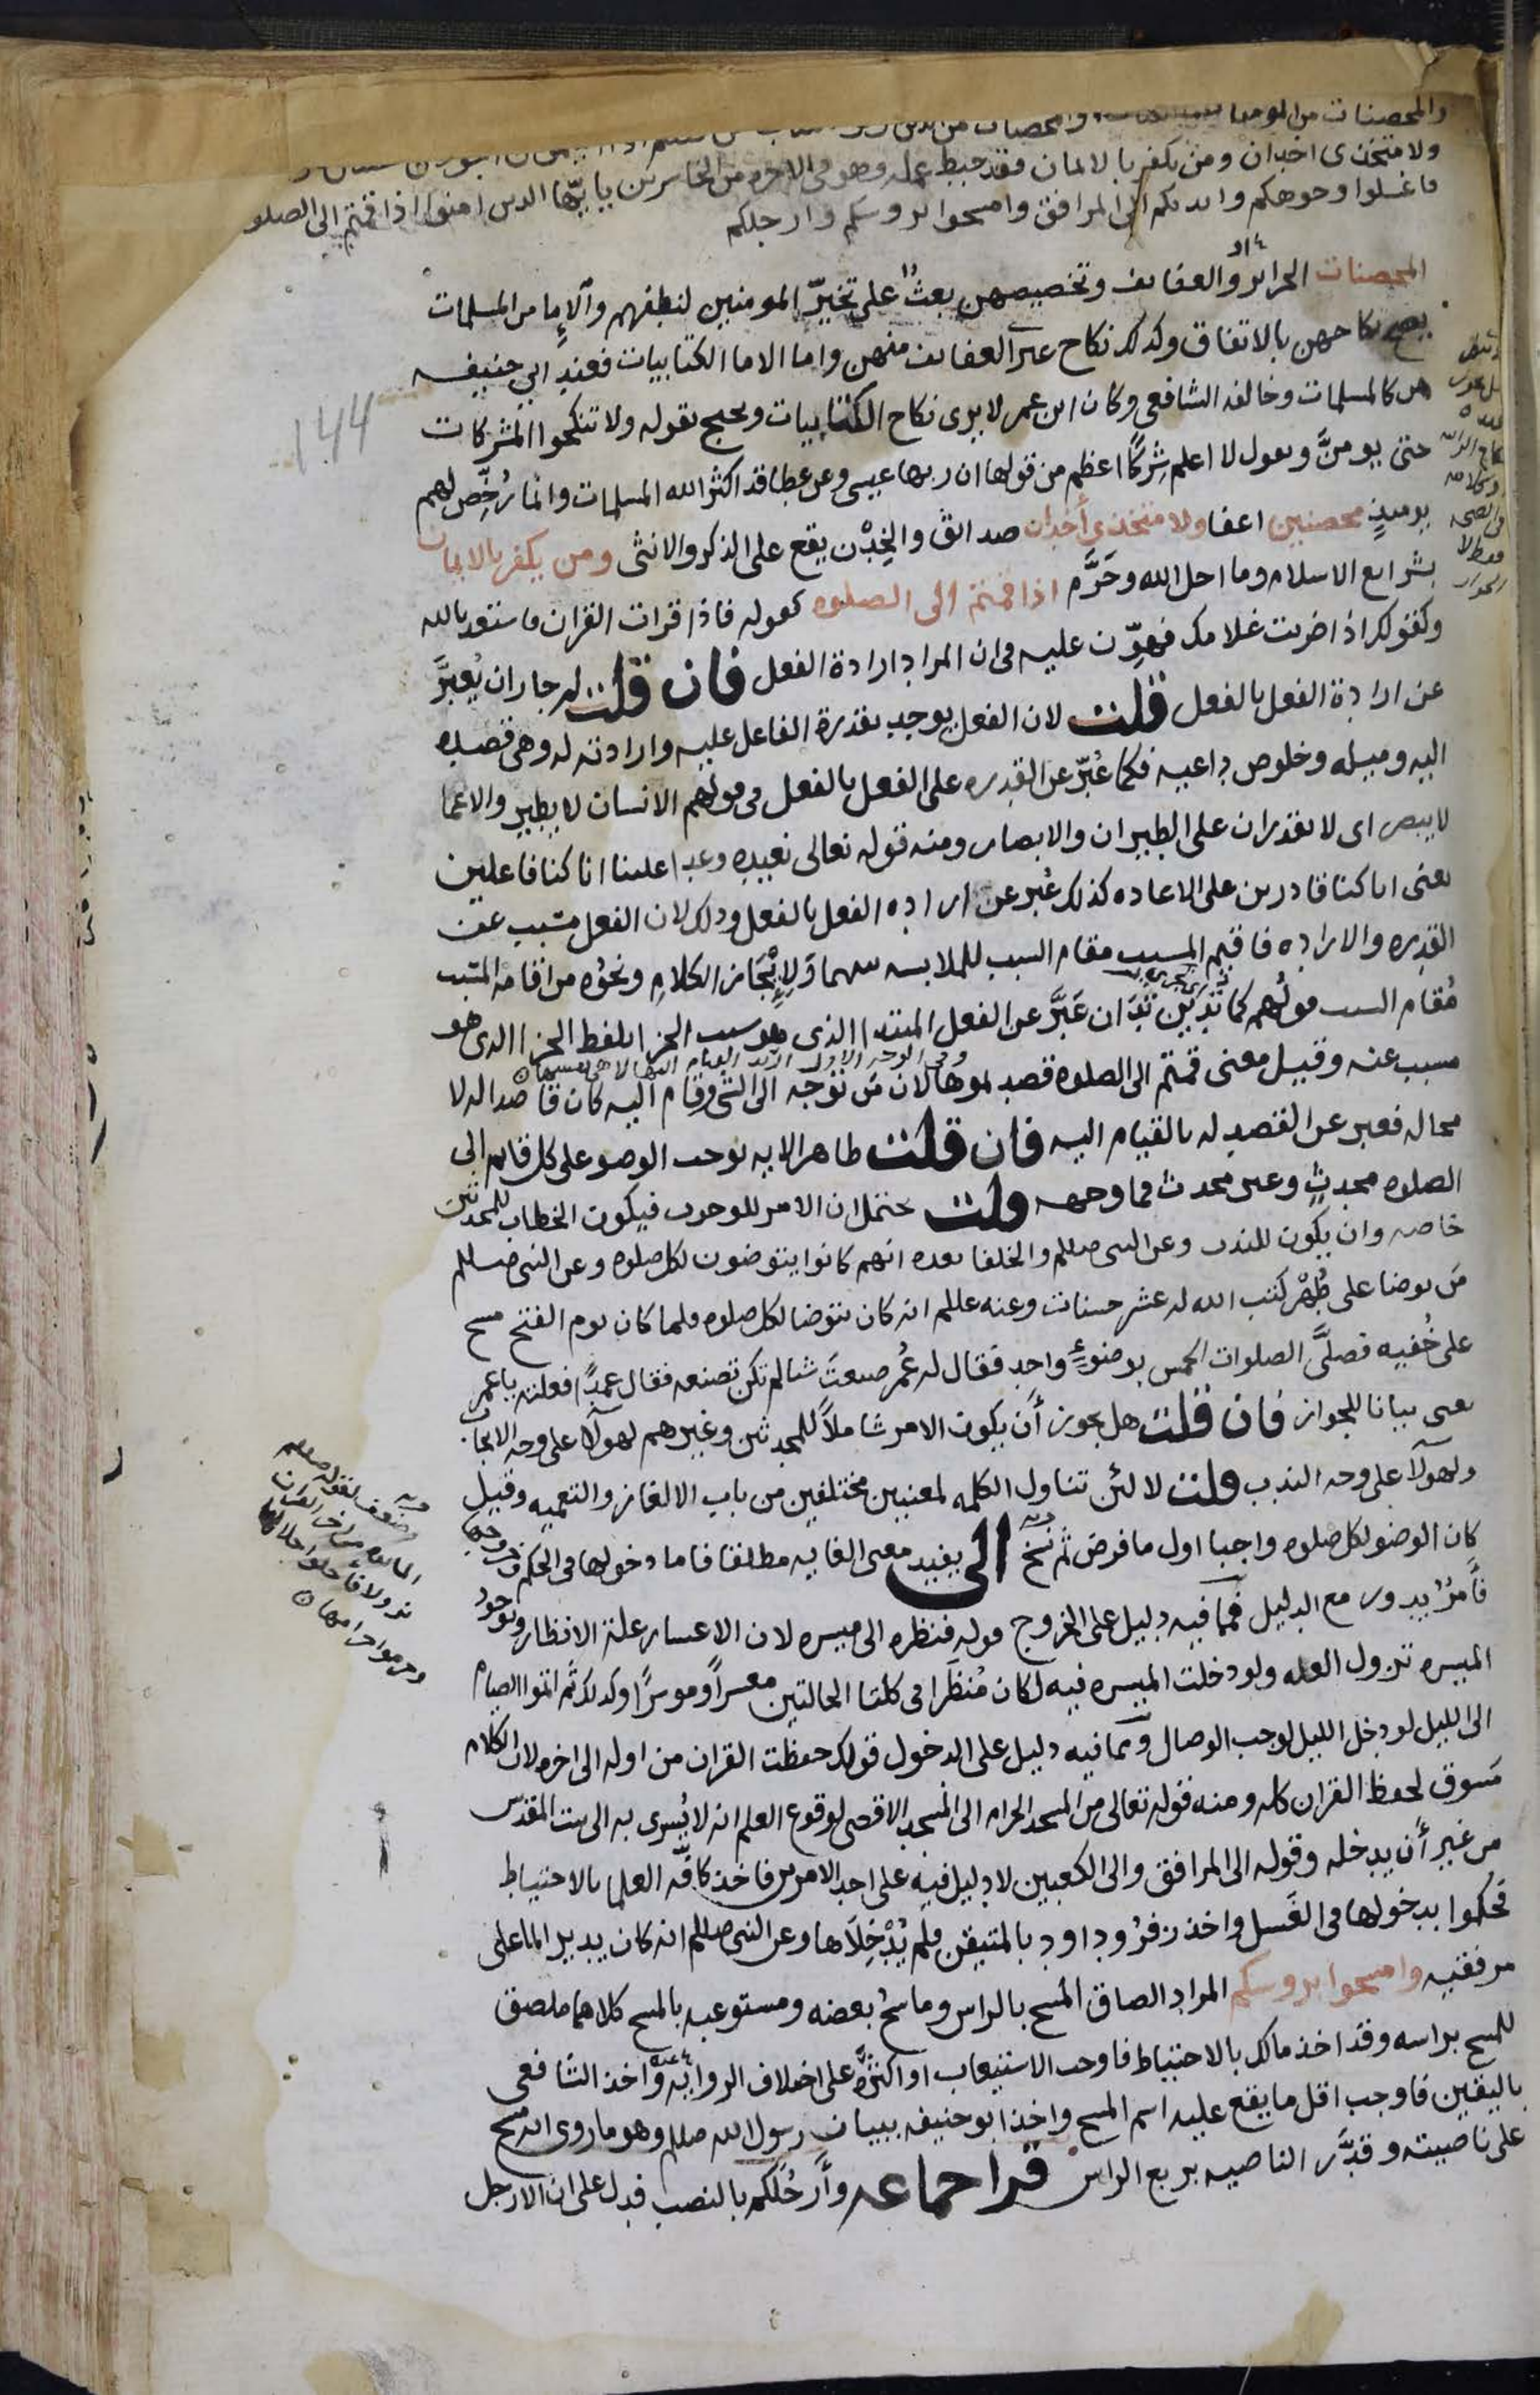 والمحصنات من المومنا
ولا متخذى اخدان ومن يكفر بالايمان فقد حبط عمله وهو فى الاخره من الخاسرين يايها الدين امنوا اذا قمتم الى الصلو
فاغسلوا وحوهكم وايديكم الى المرافق وامسحوا بروسكم وارجلكم
المحصنات الحرائر والعفائف وتخصيصهن بعث على تخير المومنين لنطفهم والاما من المسلمات
يصح نكاحهن بالاتفاق وكذلك نكاح غير العفائف منهن واما الاما الكتابيات فعند ابي حنيفه
هن كالمسلمات وخالفه الشافعي وكان ابن عمر لا يرى نكاح الكتابيات ويحتج بقوله ولا تنكحوا المشركات
حتى يومنَّ ويعول لا اعلم شِركًا اعظم من قولها ان ربها عيسى وعن عطا قد اكثر الله المسلمات وانما رُخِّص لهم
يوميذٍ محصنين اعفا ولا متخذى أخدان صدائق والخِدْن يقع على الذكر والانثى ومن يكفر بالايمان
بشرائع الاسلام وما احل الله وحَرَّم اذا قمتم الى الصلوه كقوله فاذا قرات القران فاستعذ بالله
وكقولك اذا ضربت غلامك فهوِّن عليه فى ان المراد ارادة الفعل فان قلت لم جاز ان يُعبَّر
عن ارادة الفعل بالفعل قلت لان الفعل يوجد بقدرة الفاعل عليه وارادته له وهى قصده
اليه وميله وخلوص داعيه فكما عُبّر عن القدره على الفعل بالفعل فى قولهم الانسان لا يطير والاعما
لا يبصر اى لا يقدران على الطيران والابصار ومنه قوله تعالى نعيده وعدا علينا انا كنا فاعلين
يعنى انا كنا قادرين على الاعاده كذلك عُبر عن اراده الفعل بالفعل ودلك لان الفعل مسبب عن
القدره والاراده فاقيم المسبب مقام السبب للملابسه بينهما ولإيْجَاز الكلامِ ونحوُه من اقامة المسبب
مُقام السبب قولُهم كما تَدين تُدَان عَبَّر عن الفعل المبتدا الذى هو سبب الجزا بلفظ الجزا الدى هو
مسبب عنه وقيل معنى قمتم الى الصلوه قصدتموها لان مَن توجه الى الشى وقام اليه كان قاصدا له لا
محاله فعبر عن القصد له بالقيام اليه فان قلت ظاهر الايه يوجب الوضو على كل قائم الى
الصلوه محدثٍ وغير محدث فما وجهه قلت يحتمل ان الامر للوجوب فيكون الخطاب للمحدثين
خاصه وان يكون للندب وعن النبى صللم والخلفا بعده انهم كانوا يتوضون لكل صلوه وعن النبى صللم
مَن توضا على طُهْر كتب الله له عشر حسنات وعنه عللم انه كان يتوضا لكل صلوه فلما كان يوم الفتح مسح
على خُفيه فصلَّى الصلوات الخمس بوضوءٍ واحد فقال له عُمر صنعتَ شيا لم تكن تصنعه فقال عمدًا فعلته يا عمر
يعنى بيانا للجواز فان قلت هل يجوز أن يكون الامر شاملاً للمحدثين وغيرهم لهولآ على وجه الايجاب
ولهولآ على وجه الندب قلت لا لئن تناول الكلمه لمعنيين مختلفين من باب الالغاز والتعميه وقيل
كان الوضو لكل صلوه واجبا اول ما فرض ثم نسخ الى يفيد معنى الغايه مطلقا فاما دخولها فى الحكم وخروجها
فأمرٌ يدور مع الدليل فمما فيه دليل على الخروج قوله فنظره الى ميسره لان الاعسار علة الانظار وبوجود
الميسره تزول العله ولو دخلت الميسره فيه لكان مُنظَرا فى كلتا الحالتين معسراً وموسرًا وكدلك ثم اتموا الصيام
الى الليل لو دخل الليل لوجب الوصال ومما فيه دليل على الدخول قولك حفظت القران من اوله الى اخره لان الكلام
مَسوق لحفظ القران كله ومنه قوله تعالى من المسجد الحرام الى المسجد الاقصى لوقوع العلم انه لا يُسرى به الى بيت المقدس
من غير أن يدخله وقوله الى المرافق والى الكعبين لا دليل فيه على احد الامرين فاخذ كافّه العلما بالاحتياط
فحكموا بدخولها فى الغَسل واخذ زفرُ وداود بالمتيقن فلم يُدْخِلاَها وعن النبى صللم انه كان يدير الما على
مرفقيه وامسحوا بروسكم المراد الصاق المسح بالراس وماسحُ بعضه ومستوعبه بالمسح كلاهما ملصق
للمسح براسه وقد اخذ مالك بالاحتياط فاوجب الاستيعاب او اكثره على اختلاف الروايه واخذ الشافعى
باليقين فاوجب اقل ما يقع عليه اسم المسح واخذ ابو حنيفه ببيان رسول الله صللم وهو ماروى انه مسح
على ناصيته وقدَّر الناصيه بربع الراس قرا جماعه وأرجُلَكم بالنصب فدل على ان الارجل
144